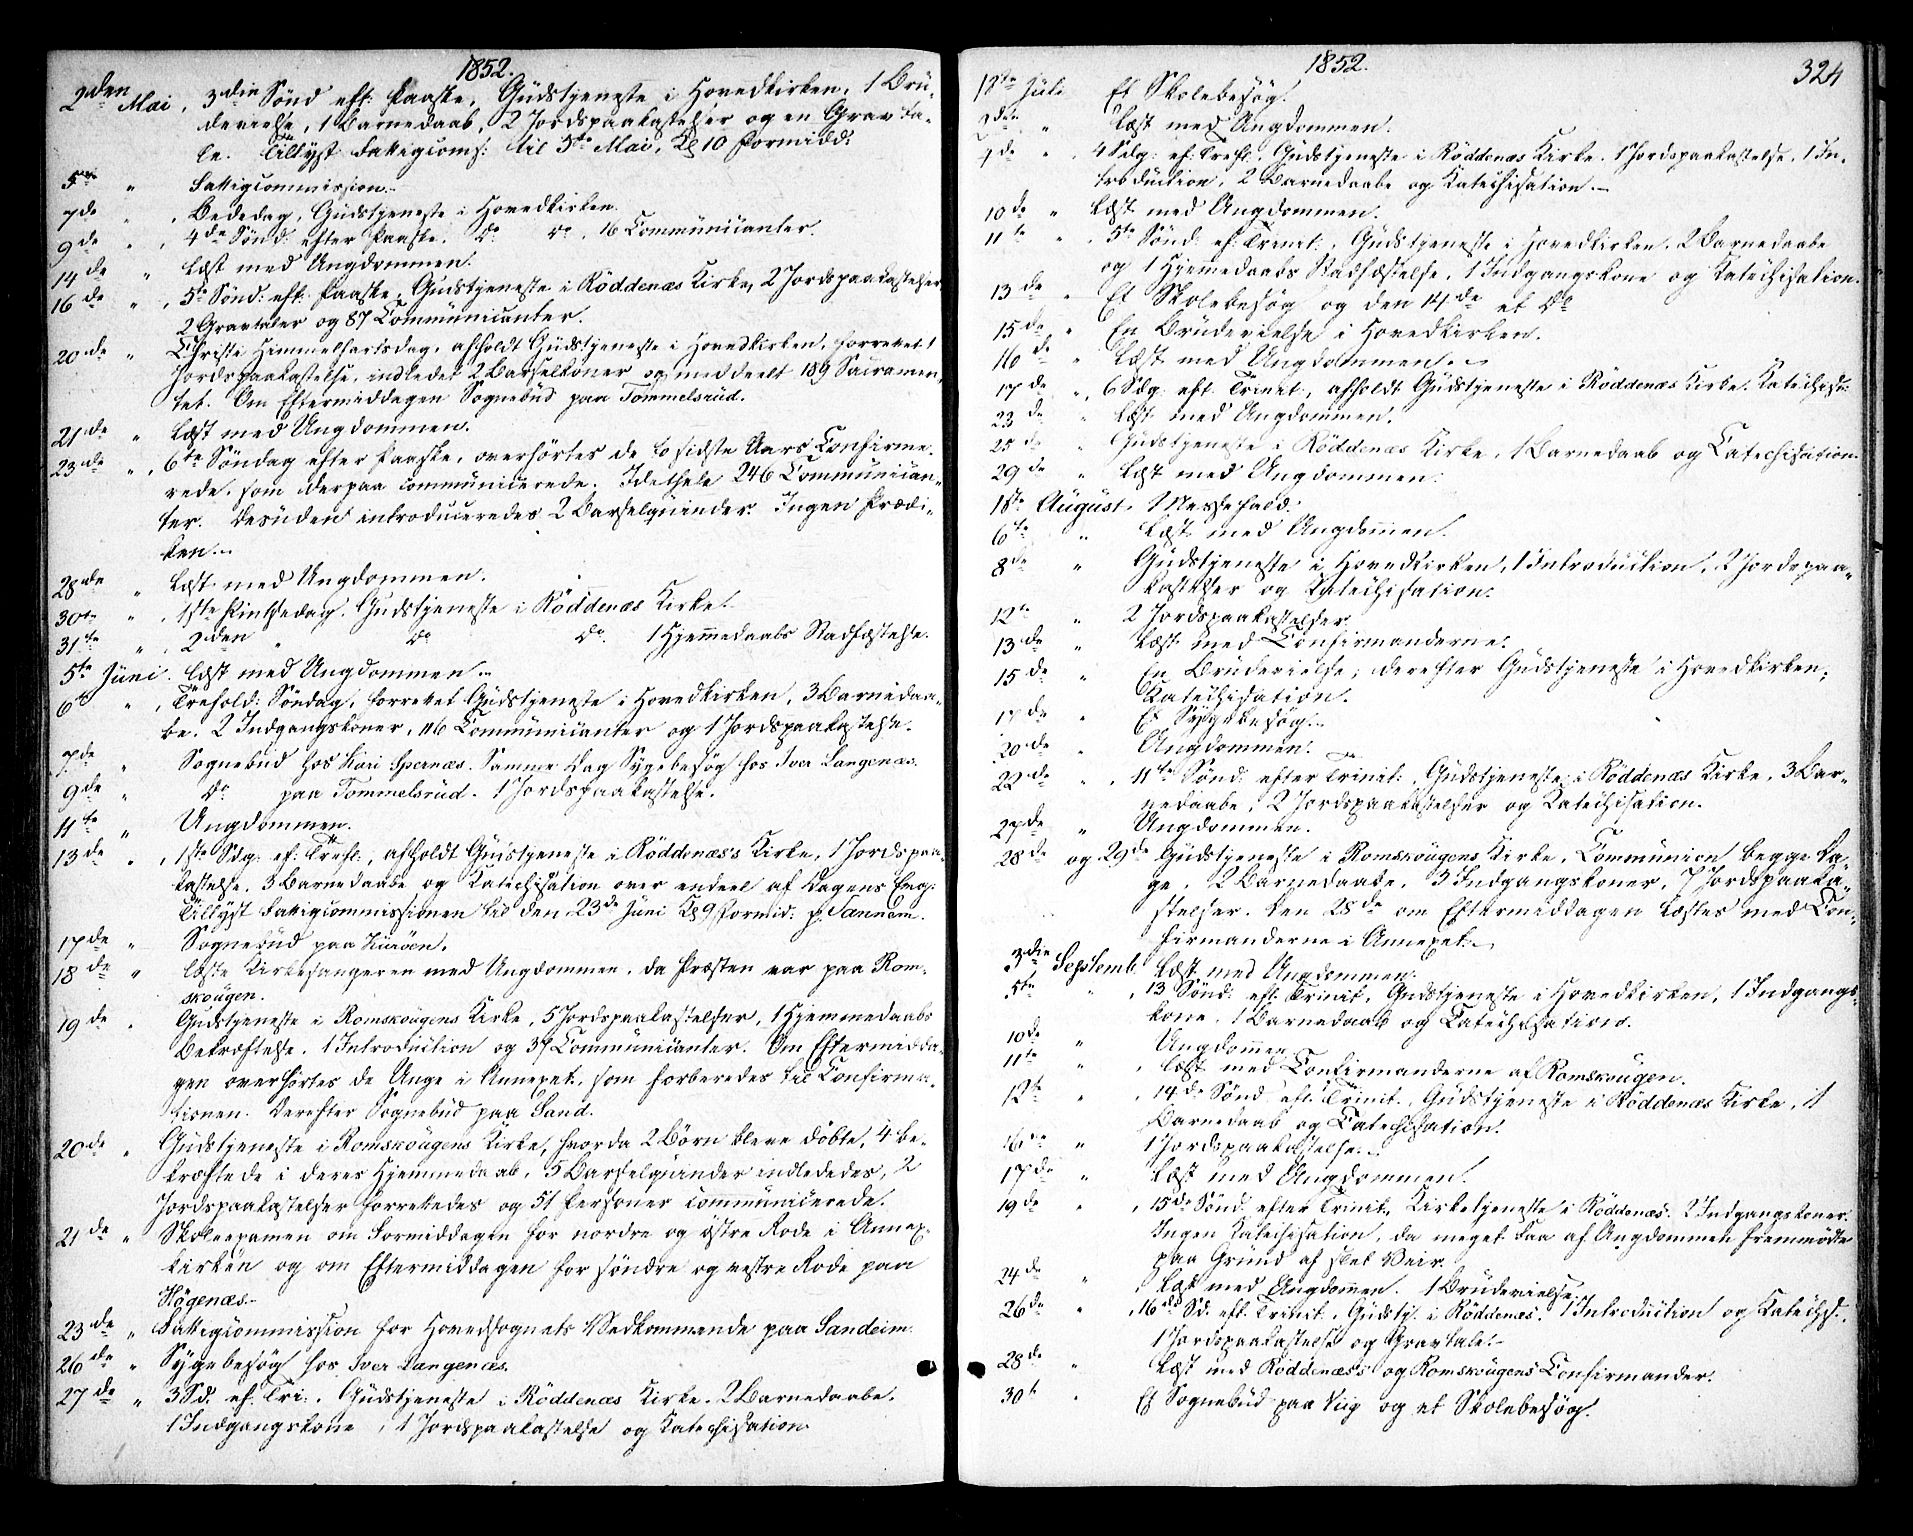 1852.
2den Mai, 3die Sönd eft: Paaske, Gudstjeneste i Hovedkirken, 1 Bru-
devielse, 1 Barnedaab, 2 Jordspaakastelser og en Gravta-
le. Tillyst Fattigcoms: til 5te Mai, Kl 10 Formidd:
5te " Fattigcommission.
7de " , Bededag, Gudstjeneste i Hovedkirken.
9de " , 4de Sönd: efter Paaske. Do Do, 16 Communicanter.
14de " Læst med Ungdommen.
16de " , 5te Sönd: eft: Paaske, Gudstjeneste i Röddenæs Kirke, 2 Jordspaakastelser,
2 Gravtaler og 87 Communicanter.
20de " Christi Himmelfartsdag, afholdt Gudstjeneste i Hovedkirken, forrettet 1
Jordspaakastelse, indledet 2 Barselkoner og meddeelt 189 Sacramen-
tet. Om Eftermiddagen Sognebud paa Tömmelsrud.
21de " Læst med Ungdommen.
23de " , 6te Söndag efter Paaske, overhörtes de to sidste Aars Confirme-
rede, som derpaa communicerede. Idethele 246 Communican-
ter. Desuden introduceredes 2 Barselqvinder. Ingen Prædi-
ken.
28de " Læst med Ungdommen.
30te " , 1ste Pintsedag. Gudstjeneste i Röddenæs Kirke.
31te " , 2den " Do Do. 1 Hjemmedaabs Stadfæstelse.
5te Juni. Læst med Ungdommen
6te " , Trefold: Söndag, forrettet Gudstjeneste i Hovedkirken, 3 Barnedaa-
be. 2 Indgangskoner, 116 Communicanter og 1 Jordspaakastelse.
7de " Sognebud hos Kari Spernæs. Samme Dag Sygebesög hos Iver Langenæs.
9de " Do paa Tömmelsrud. 1 Jordspaakastelse.
11te " Ungdommen.
13de " , 1ste Sdg: ef: Tref:, afholdt Gudstjeneste i Röddenæs's Kirke, 1 Jordspaa-
kastelse. 3 Barnedaabe og Katechisation over endeel af Dagens Evg:
Tillyst Fattigcommissionen til den 23de Juni Kl 9 Formid: p. Sandem.
17de " Sognebud paa
18de " Læste Kirkesangeren med Ungdommen, da Præsten var paa Rom-
skougen.
19de " Gudstjeneste i Romskougens Kirke, 5 Jordspaakastelser, 1 Hjemmedaabs
Bekræftelse. 1 Introduction og 37 Communicanter. Om Eftermidda-
gen overhörtes de Unge i Annexet, som forberedes til Confirma-
tionen. Derefter Sognebud paa Sand.
20de " Gudstjeneste i Romskougens Kirke, hvorda 2 Börn bleve döbte, 4 be-
kræftede i deres Hjemmedaab, 5 Barselqvinder indlededes, 2
Jordspaakastelser forrettedes og 51 Personer communicerede.
21de " Skoleexamen om Formiddagen for nordre og östre Rode i Annex-
kirken og om Eftermiddagen for söndre og vestre Rode paa
Högenæs.
23de " Fattigcommission for Hovedsognets Vedkommende paa Sandeim.
26de " Sygebesög hos Iver Langenæs.
27de " 3 Sd. ef: Tri:. Gudstjeneste i Röddenæs Kirke. 2 Barnedaabe.
1 Indgangskone, 1 Jordspaakastelse og Katechisation
1852.
324
Juli Et Skolebesög.
2den " Læst med Ungdommen.
4de " , 4 Sdg: ef: Tref:. Gudstjeneste i Röddenæs Kirke. 1 Jordspaakastelse, 1 In-
troduction, 2 Barnedaabe og Katechisation.
10de " Læst med Ungdommen.
11te " , 5te Sönd: ef: Trinit:, Gudstjeneste i Hovedkirken. 2 Barnedaabe
og 1 Hjemmedaabs Stadfæstelse, 1 Indgangskone og Katechisation.
13de " Et Skolebesög og den 14de et Do
15de " En Brudevielse i Hovedkirken.
16de " Læst med Ungdommen.
17de " , 6 Sdg: eft: Trinit:, afholdt Gudstjeneste i Röddenæs Kirke. Katechist:
23de " Læst med Ungdommen.
25de " Gudstjeneste i Röddenæs Kirke, 1 Barnedaab og Catechisation.
29de " Læst med Ungdommen.
1ste August. Messefald.
6te " Læst med Ungdommen.
8de " Gudstjeneste i Hovedkirken, 1 Introduction, 2 Jordspaa-
kastelser og Katechisation.
12te " 2 Jordspaakastelser.
13de " Læst med Confirmanderne.
15de " En Brudevielse; derefter Gudstjeneste i Hovedkirken,
Katechisation.
17de " Et Sygebesög.
20de " Ungdommen.
22de " , 11te Sönd: efter Trinit:, Gudstjeneste i Röddenæs Kirke, 3 Bar-
nedaabe, 2 Jordspaakastelser og Katechisation.
27de " Ungdommen.
28de og 29de Gudstjeneste i Romskougens Kirke, Communion begge Da-
ge. 2 Barnedaabe. 3 Indgangskoner, 7 Jordspaaka-
stelser. Den 28de om Eftermiddagen læstes med Con-
firmanderne i Annexet.
3die Septemb. Læst med Ungdommen.
5te " , 13 Sönd: eft: Trinit, Gudstjeneste i Hovedkirken, 1 Indgangs-
kone. 1 Barnedaab og Catechisation.
10de " Ungdommen
11te " , Læst med Confirmanderne af Romskougen.
12te " , 14de Sönd: eft: Trinit:, Gudstjeneste i Röddenæs Kirke, 1
Barnedaab og Catechisation.
16de " 1 Jordspaakastelse.
17de " Læst med Ungdommen.
19de " , 15de Sönd: efter Trinit, Kirketjeneste i Röddenæs. 2 Indgangskoner.
Ingen Katechisation, da meget Faa af Ungdommen fremmödte
paa Grund af slet Veir.
24de " , Læst med Ungdommen. 1 Brudevielse.
26de " , 16de Sd. eft: Trinit:, Gudstj. i Röddenæs. 1 Introduction og Katechs:,
1 Jordspaakastelse og Gravtale.
28de " Læst med Röddenæs's og Romskougens Confirmander.
30te " Et Sognebud paa Viig og et Skolebesög.